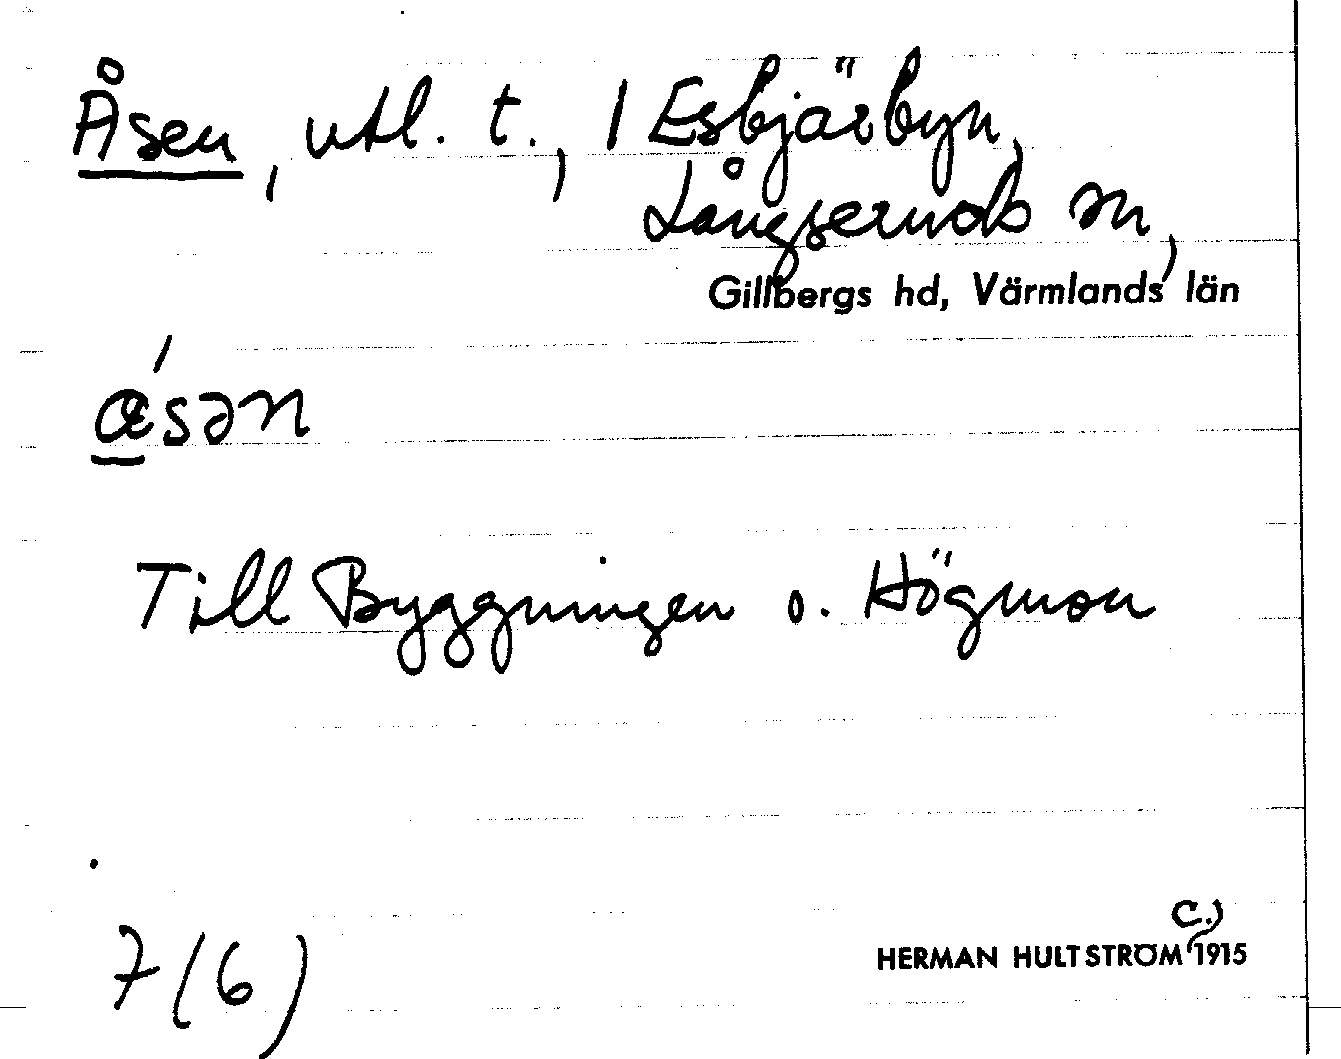 Åsen, utl. t., 1 Esbjärbyn,
Långseruds sn,
Gillbergs hd, Värmlands län
ǻsən
Till Byggningen o. Högmon
7(6)
HERMAN HULTSTRÖM (c.) 1915